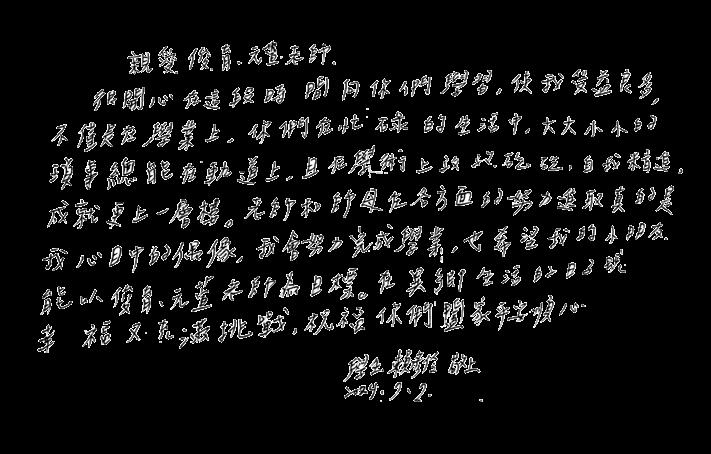 親愛俊育、元萱老師.
很開心在這段時間向你們學習,使我受益良多,
不僅是在學業上,你們在忙碌的生活中,大大小小的
瑣事總能在軌道上,且在學術上,自我精進,
成就更上一層樓。老師和師在各方面的努力進取真的是
我心目中的偶像,我會努力完成學業,也希望我的小朋友
能以俊育、元萱老師為目標。在異鄉生活的日子既
幸福又充滿挑戰,祝福你們闔家平安順心
學生 敬上
2024.9.2.